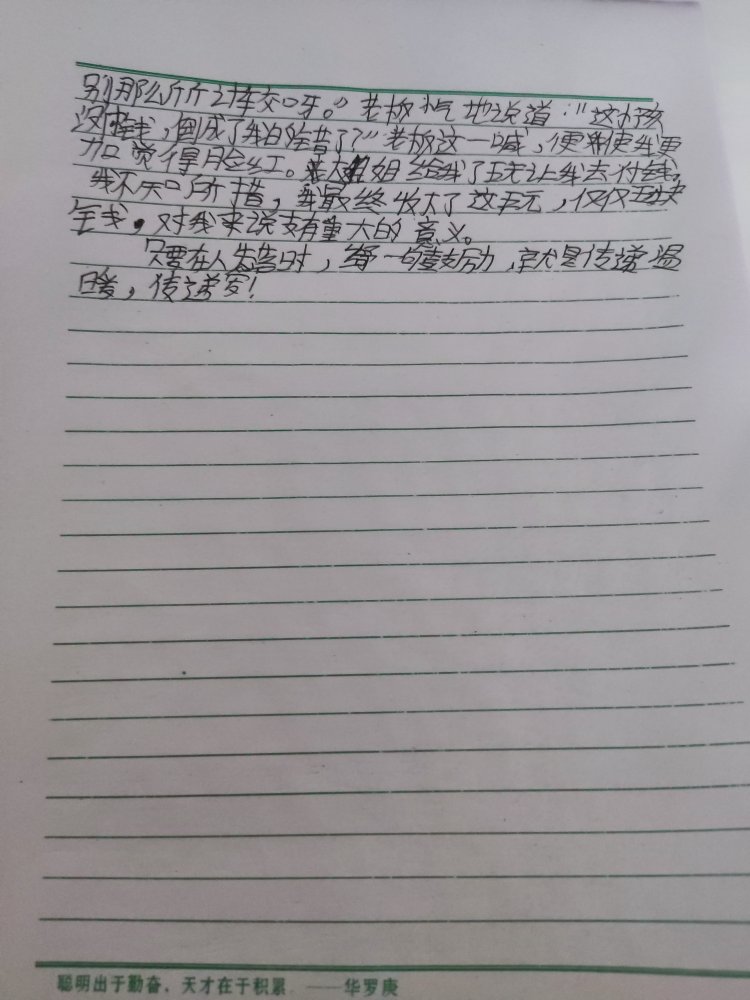 别那么斤斤计较交口牙。”老板气地说道：“这小孩
没钱，倒成了我的错了？”老板这一喊，便使我更
加觉得脸红。大姐给我了5元让我去付钱。
我不知所措，我最终收下了这5元，仅仅五块
钱，对我来说有重大的意义。
只要在人危害时，给一句鼓励，就是传递温
暖，传递爱！
聪明出于勤奋，天才在于积累 ——华罗庚